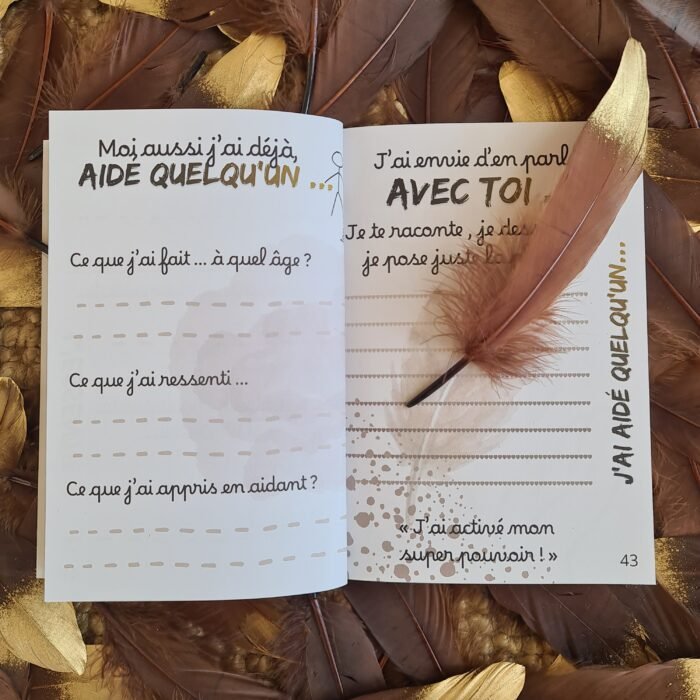 Moi aussi j'ai déjà,
AIDÉ QUELQU'UN ...
Ce que j'ai fait ... à quel âge ?
Ce que j'ai ressenti ...
Ce que j'ai appris en aidant ?
J'ai envie d'en parl
AVEC TOI
Je te raconte, je des
je pose juste
« J'ai activé mon
super pouvoir ! »
J'AI AIDÉ QUELQU'UN...
43